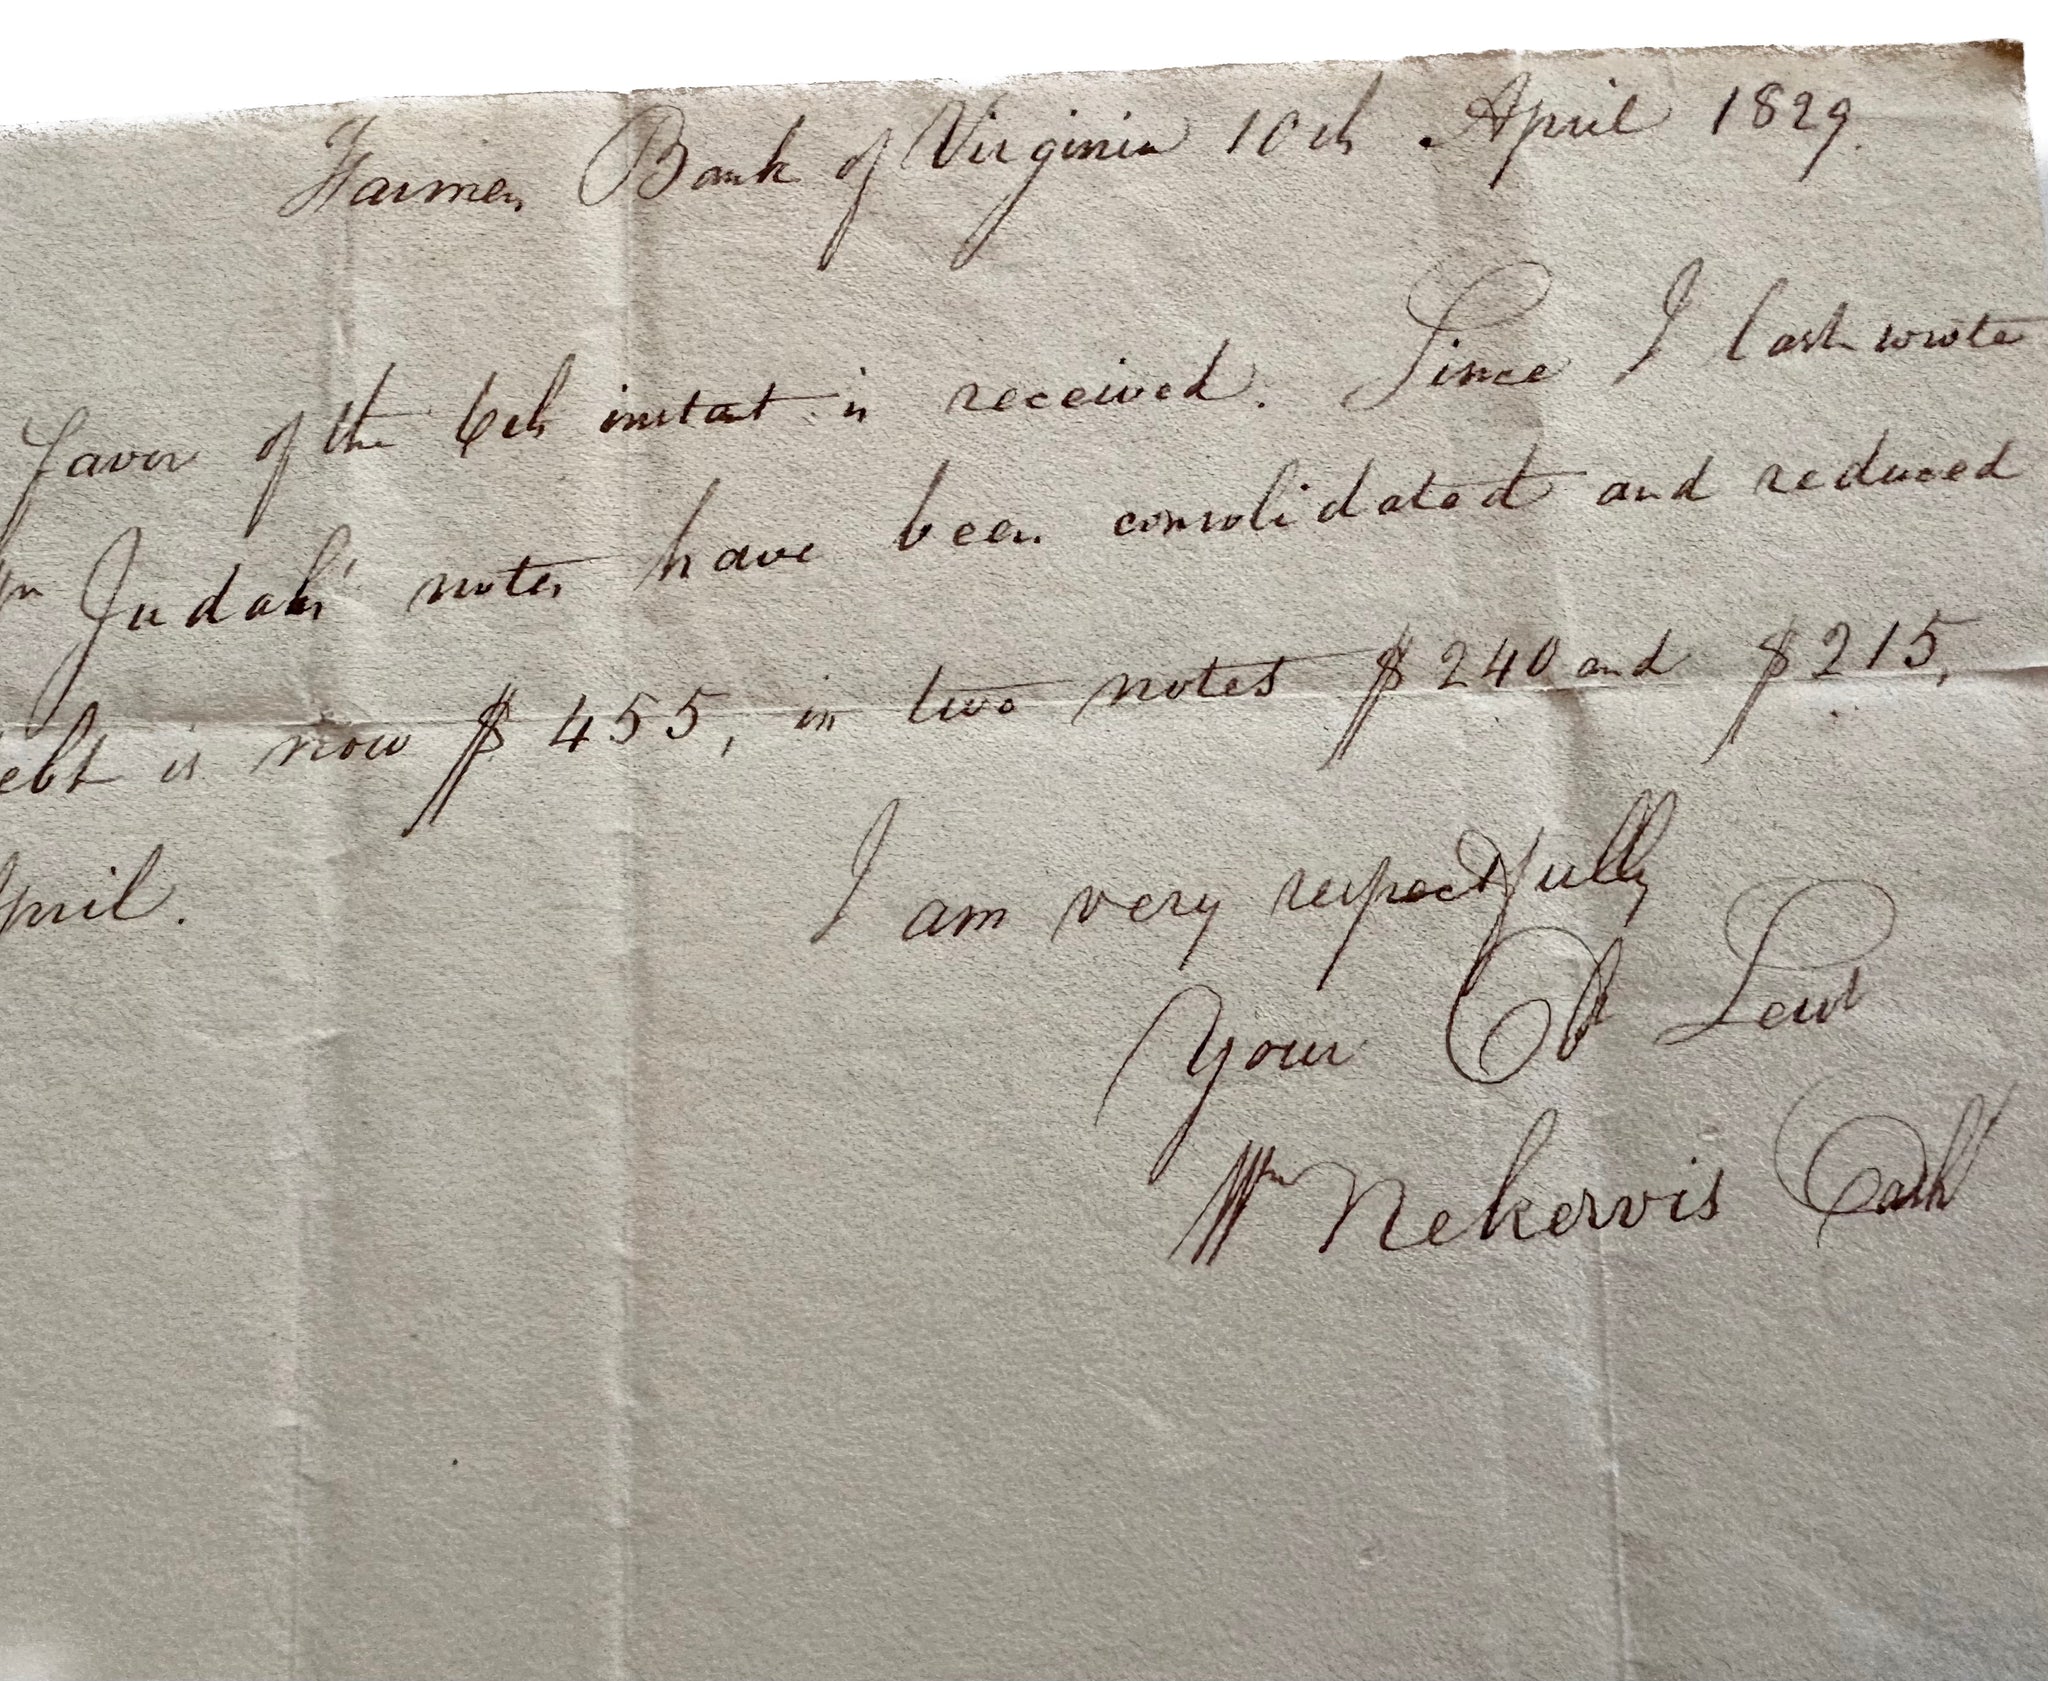 Farmers Bank of Virginia 10th April 1829.
favor of the 6th instant is received. Since I last wrote
Judahs' notes have been consolidated and reduced
ebt is now $455, in two notes $240 and $215,
pril.
I am very respectfully
Your Ob Servt
Wm Nekervis Cashr